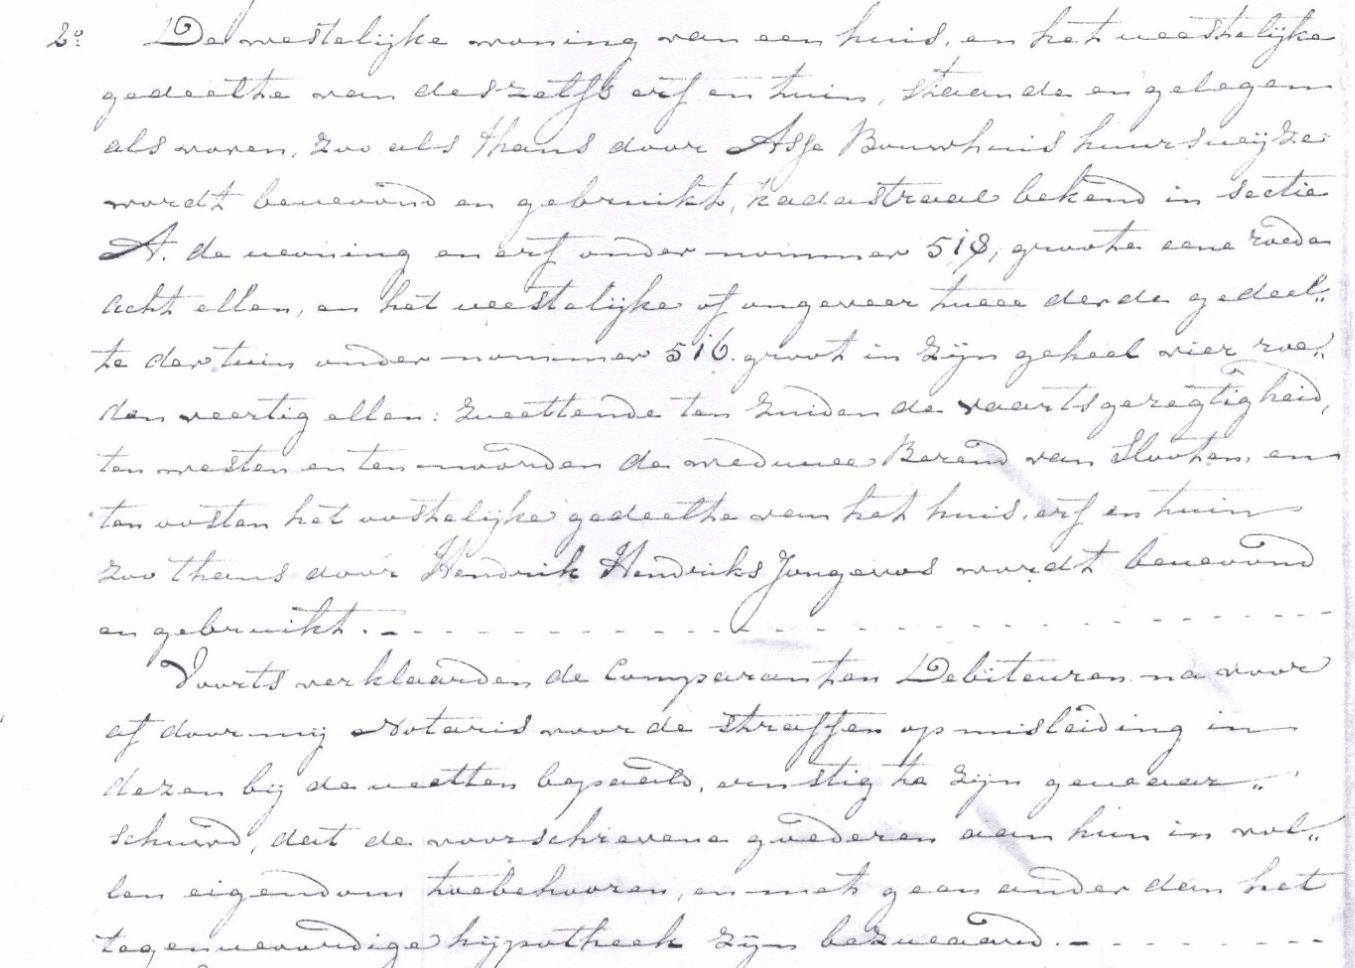 2o. De westelijke woning van een huis, en het westelijke
gedeelte van deszelfs erf en tuin, staande en gelegen
als voren, zoo als thans door Asje Bouwhuis huurswijze
wordt bewoond en gebruikt, kadastraal bekend in sectie
A. de woning en erf onder nommer 518, groote eene roede
acht ellen, en het westelijke of ongeveer twee derde gedeel„
te der tuin onder nommer 516. groot in zijn geheel vier roe„
den veertig ellen: zwettende ten zuiden de vaartsgeregtigheid,
ten westen en ten noorden de weduwe Berend van Slooten, en
ten oosten het oostelijke gedeelte van het huis, erf en tuin
zoo thans door Hendrik Hendriks Jongevos wordt bewoond
en gebruikt. -
Voorts verklaarden de Comparanten Debiteuren na voor
af door mij Notaris voor de straffen op misleiding in
dezen bij de wetten bepaald, ernstig te zijn gewaar„
schuwd, dat de voorschrevene goederen aan hun in vol„
len eigendom toebehooren, en met geen ander dan het
tegenwoordige hijpotheek zijn bezwaard. -